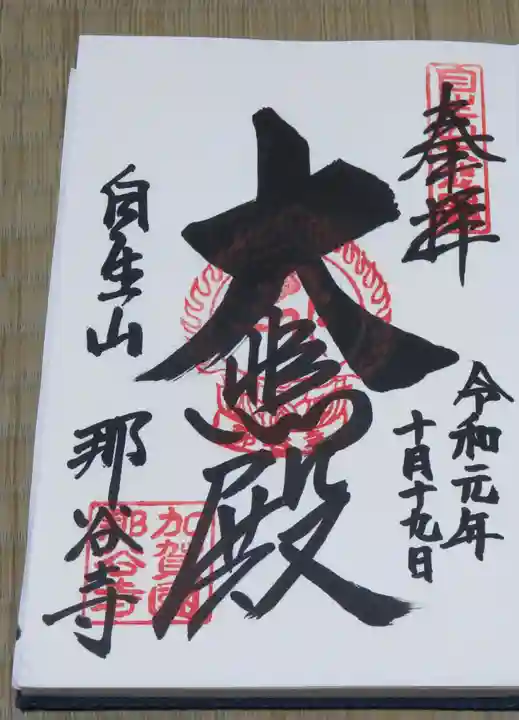 奉拝
令和元年
十月十九日
大悲殿
自生山
那谷寺
加賀國
那谷寺